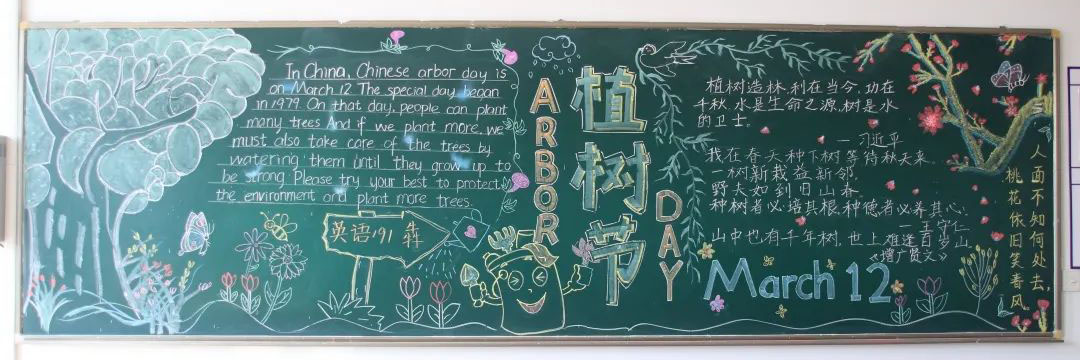 In China, Chinese arbor day is
on March 12. The special day began
in 1979. On that day, people can plant
many trees. And if we plant more, we
must also take care of the trees by
watering them until they grow up to
be strong. Please try your best to protect
the environment and plant more trees.
英语191 犇
ARBOR
植树节
DAY
植树造林,利在当今,功在
千秋,水是生命之源,树是水
的卫士。
—习近平
我在春天种下树等待秋天来
一树新栽益新邻,
野夫如到旧山春
种树者必培其根,种德者必养其心.
—王守仁
山中也有千年树,世上难逢百岁山
《增广贤文》
March 12
人面不知何处去,
桃花依旧笑春风